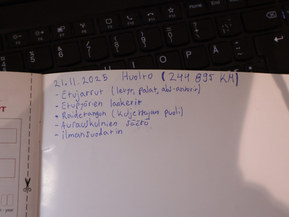 21.11.2025 Huolto (244 895 KM)
- Etujarrut (levyt, palat, abs-anturi)
- Etupyörien laakerit
- Raidetangon (Kuljettajan puoli)
- Aurauskulmien säätö
- ilmansuodatin